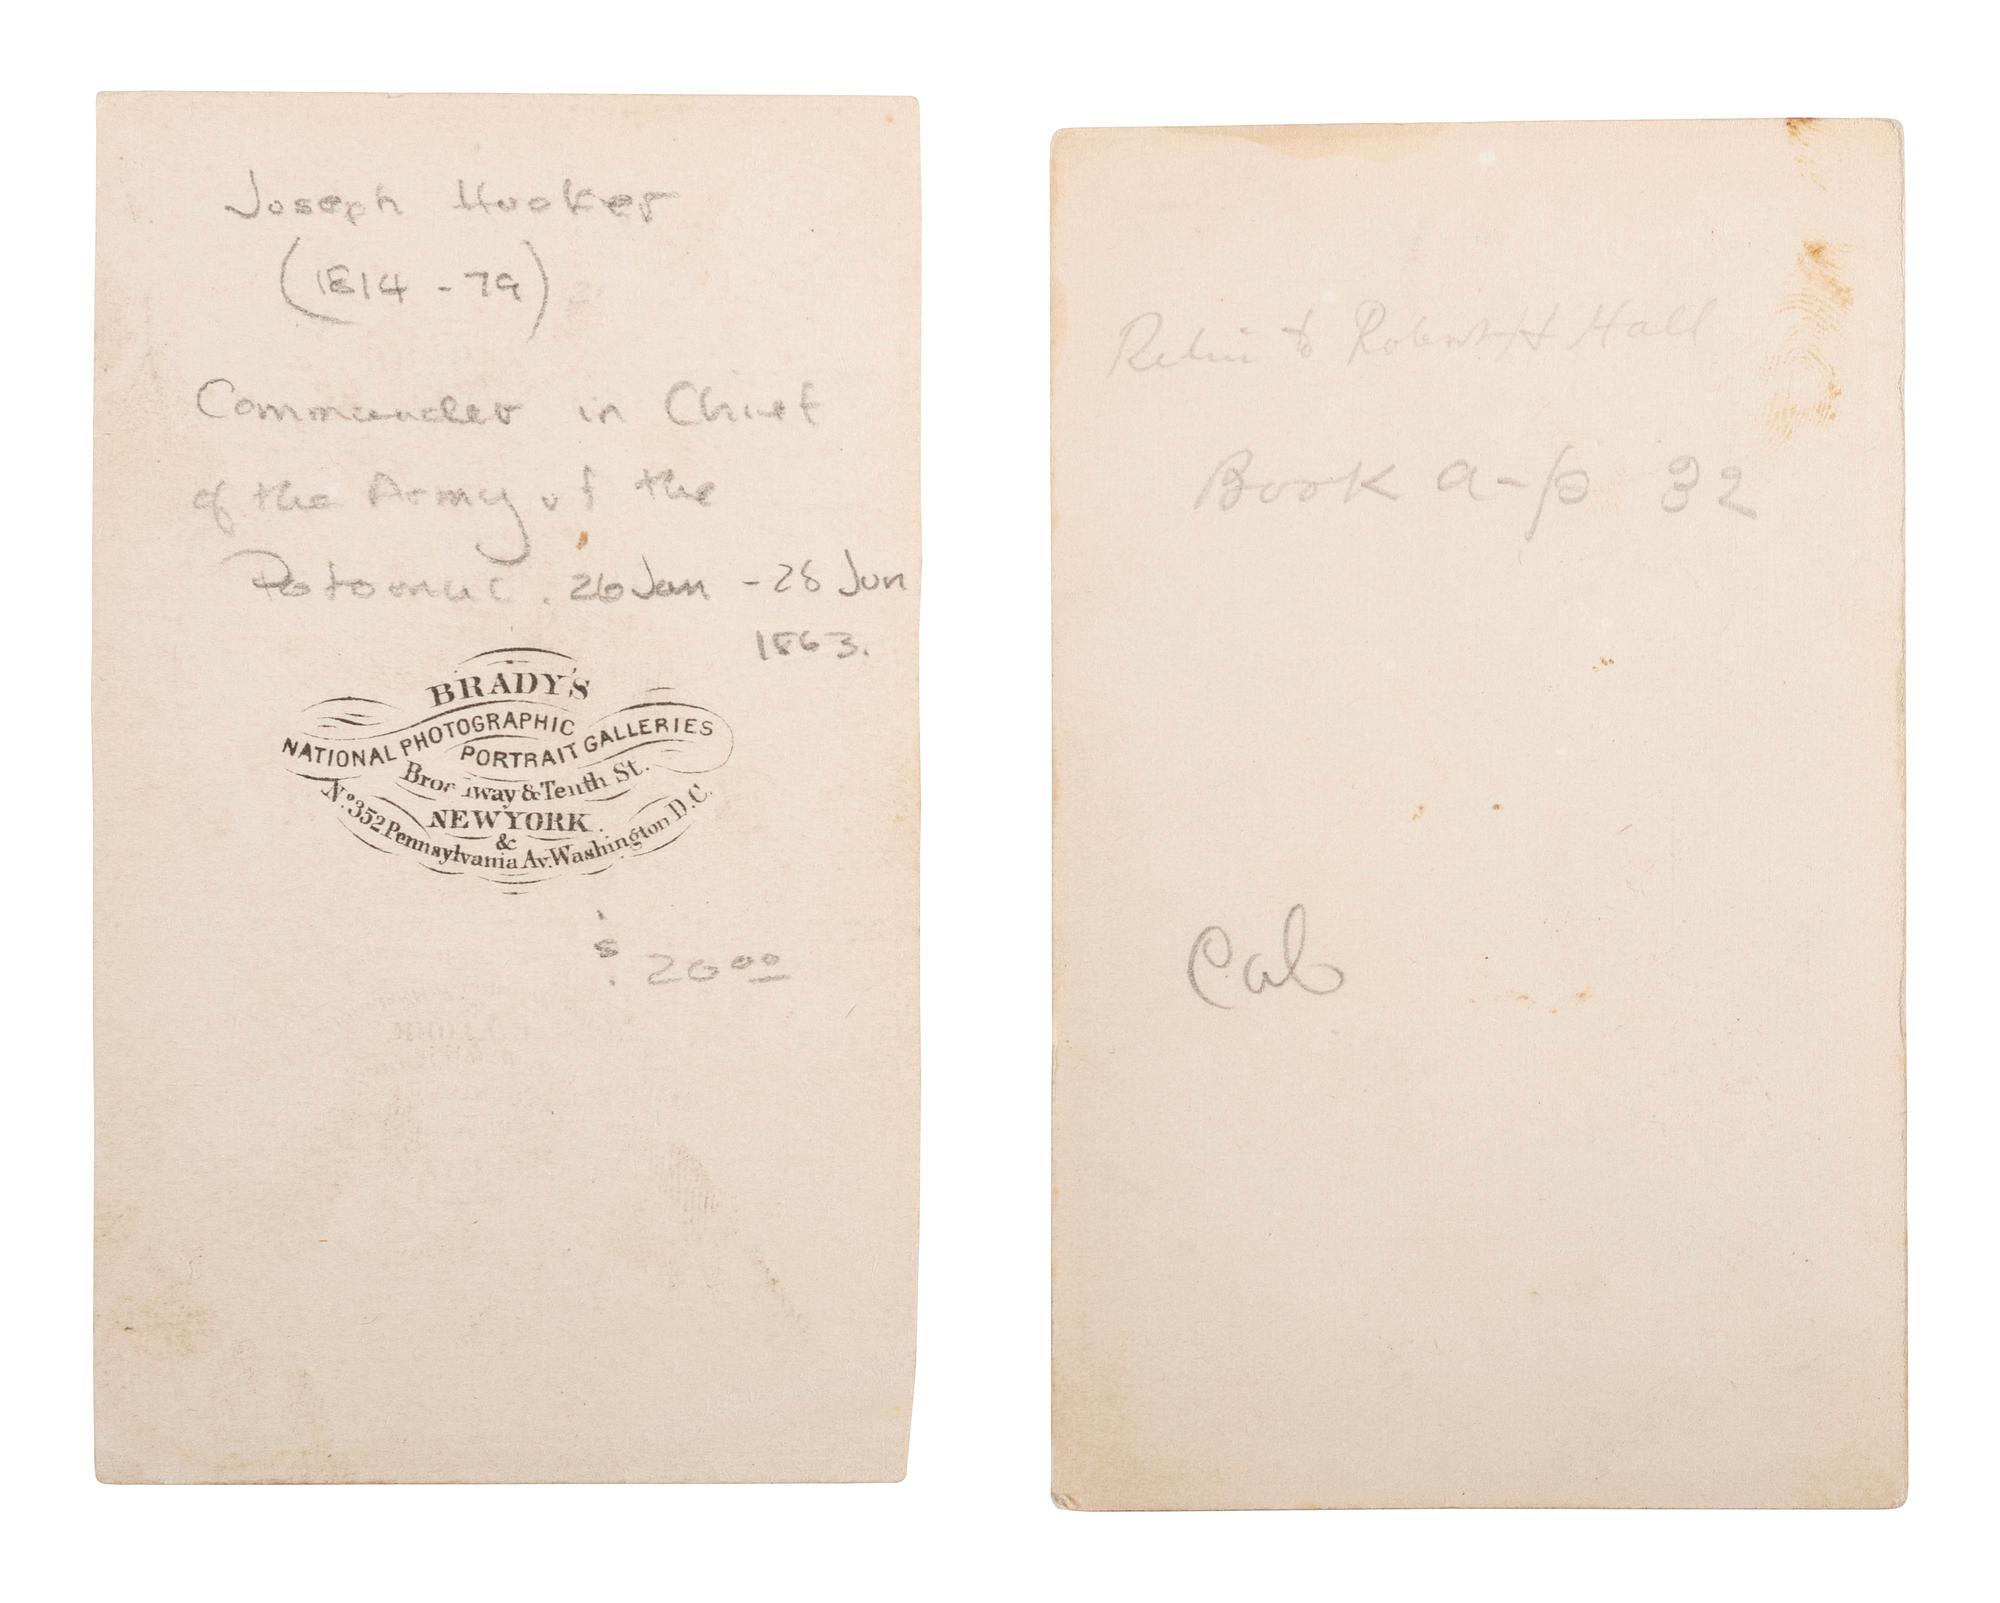 Joseph Hooker
(1814 - 79)
Commander in Chief
of the Army of the
Potomac. 26 Jan - 28 Jun
1863.
BRADY'S
NATIONAL PHOTOGRAPHIC
PORTRAIT GALLERIES
Broadway & Tenth St.
NEW YORK.
&
No. 352 Pennsylvania Av. Washington D.C.
$ 20 00
to Robert H Hall
Book a-p 32
Cab